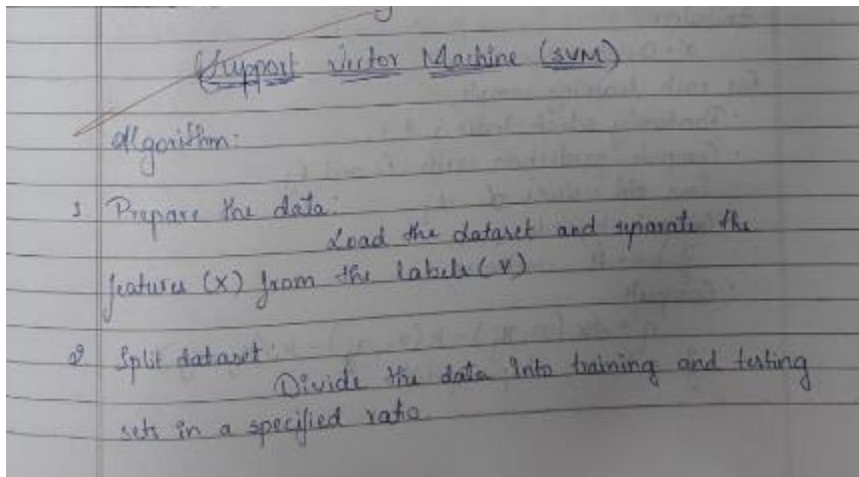 Support Vector Machine (SVM)
Algorithm:
1 Prepare the data:
Load the dataset and separate the
features (X) from the labels (Y)
2 Split dataset:
Divide the data into training and testing
sets in a specified ratio